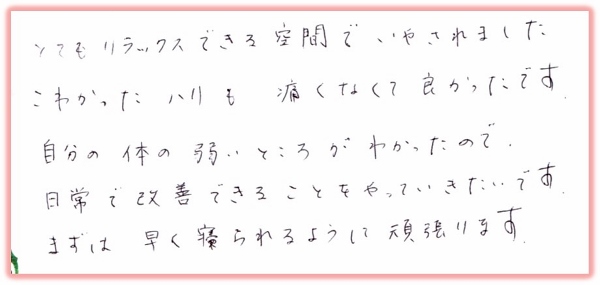 とてもリラックスできる空間で いやされました
こわかった ハリも 痛くなくて良かったです。
自分の体の弱いところがわかったので、
日常で改善できることをやっていきたいです。
まずは 早く寝られるように頑張ります。